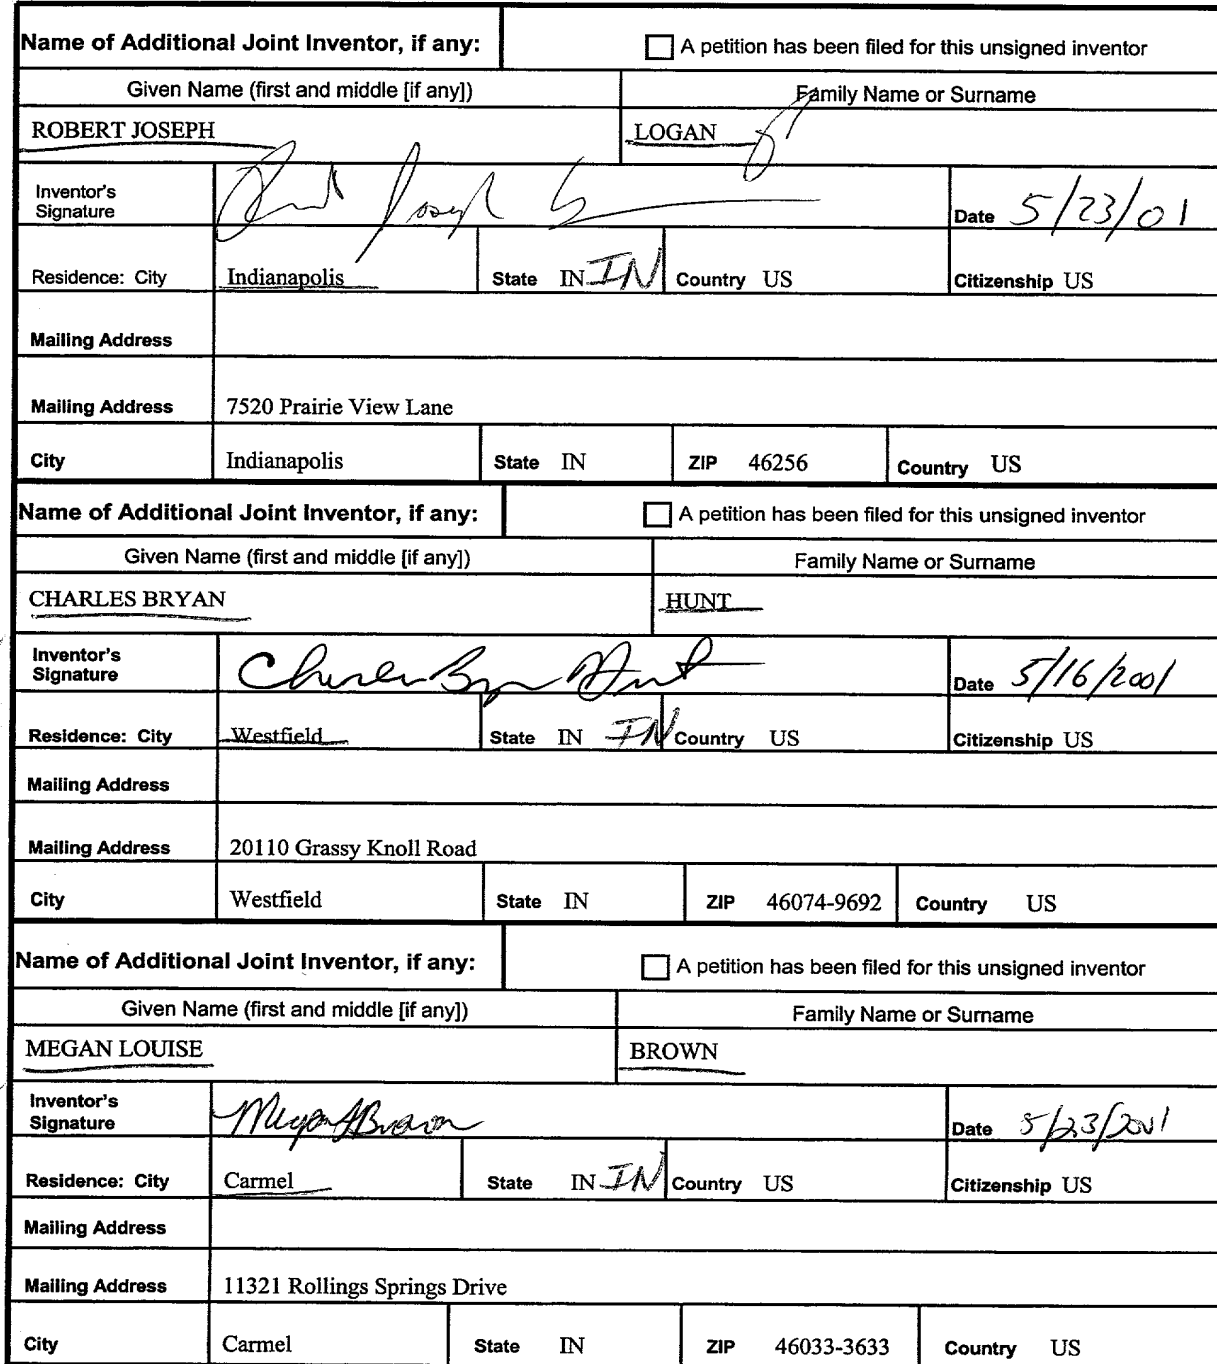 Name of Additional Joint Inventor, if any: A petition has been filed for this unsigned inventor
Given Name (first and middle [if any]) Family Name or Surname
ROBERT JOSEPH LOGAN
Inventor's
Signature Date 5/23/01
Residence: City Indianapolis State IN IN Country US Citizenship US
Mailing Address
Mailing Address 7520 Prairie View Lane
City Indianapolis State IN ZIP 46256 Country US
Name of Additional Joint Inventor, if any: A petition has been filed for this unsigned inventor
Given Name (first and middle [if any]) Family Name or Surname
CHARLES BRYAN HUNT
Inventor's
Signature Charles Bryan Hunt Date 5/16/2001
Residence: City Westfield State IN IN Country US Citizenship US
Mailing Address
Mailing Address 20110 Grassy Knoll Road
City Westfield State IN ZIP 46074-9692 Country US
Name of Additional Joint Inventor, if any: A petition has been filed for this unsigned inventor
Given Name (first and middle [if any]) Family Name or Surname
MEGAN LOUISE BROWN
Inventor's
Signature Megan L Brown Date 5/23/2001
Residence: City Carmel State IN IN Country US Citizenship US
Mailing Address
Mailing Address 11321 Rollings Springs Drive
City Carmel State IN ZIP 46033-3633 Country US